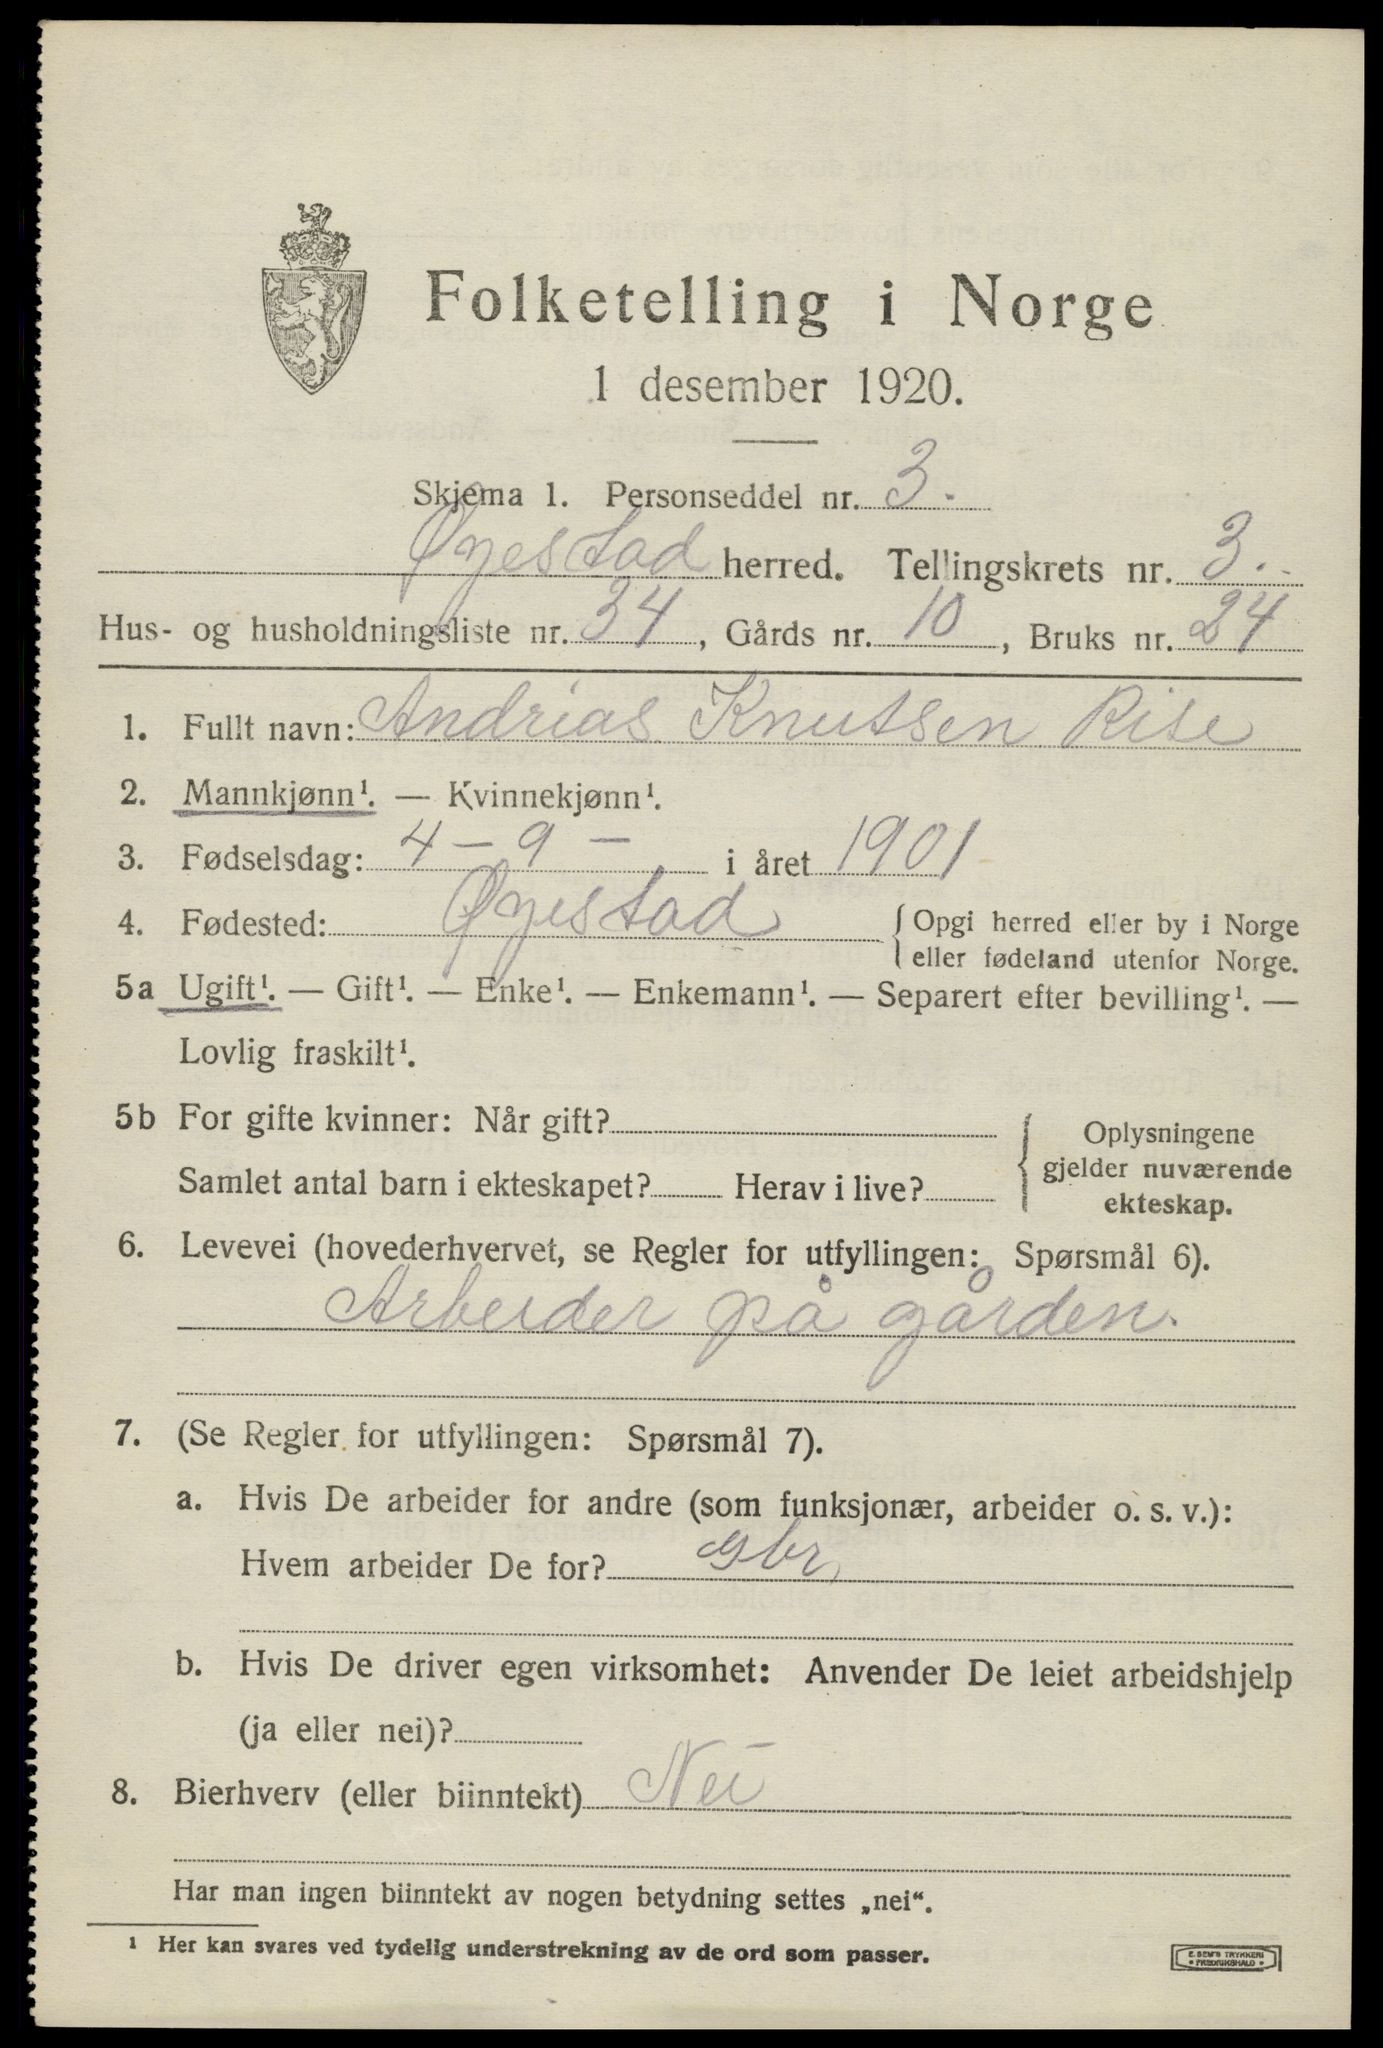 Folketelling i Norge
1 desember 1920.
Skjema 1. Personseddel nr. 3.
Øyestad herred. Tellingskrets nr. 3.
Hus- og husholdningsliste nr. 34, Gårds nr. 10, Bruks nr. 24
1. Fullt navn: Andrias Knutsen Rise
2. Mannkjønn¹. — Kvinnekjønn¹.
3. Fødselsdag: 4 - 9 - i året 1901
4. Fødested: Øyestad { Opgi herred eller by i Norge
eller fødeland utenfor Norge.
5a Ugift¹. — Gift¹. — Enke¹. — Enkemann¹. — Separert efter bevilling¹. —
Lovlig fraskilt¹.
5b For gifte kvinner: Når gift?
Samlet antal barn i ekteskapet? Herav i live?
{ Oplysningene
gjelder nuværende
ekteskap.
6. Levevei (hovederhvervet, se Regler for utfyllingen: Spørsmål 6).
Arbeider på gården.
7. (Se Regler for utfyllingen: Spørsmål 7).
a. Hvis De arbeider for andre (som funksjonær, arbeider o. s. v.):
Hvem arbeider De for? gbr,
b. Hvis De driver egen virksomhet: Anvender De leiet arbeidshjelp
(ja eller nei)?
8. Bierhverv (eller biinntekt) Nei
Har man ingen biinntekt av nogen betydning settes „nei“.
¹ Her kan svares ved tydelig understrekning av de ord som passer.
E. SEM'S TRYKKERI
• FREDRIKSHALD •